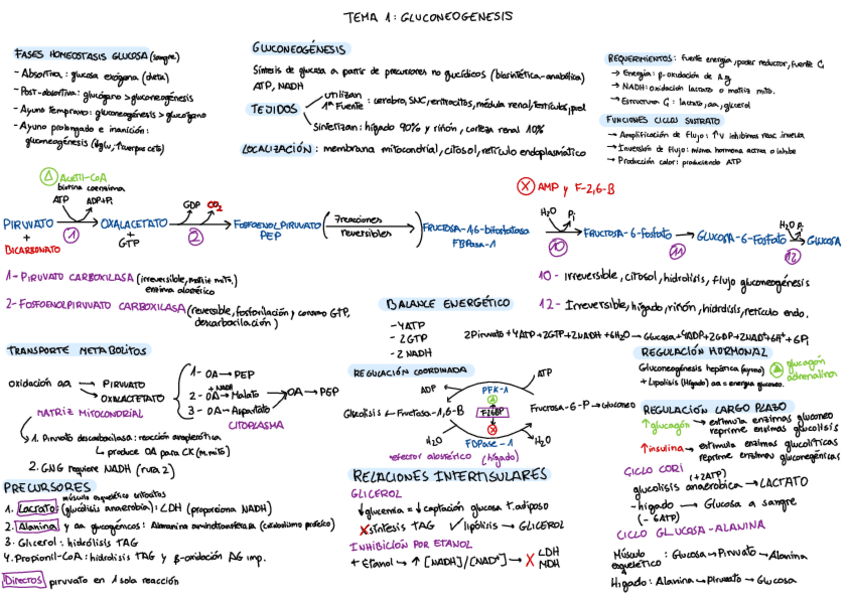 TEMA 1: GLUCONEOGENESIS
FASES HOMEOSTASIS GLUCOSA (sangre)
- Absortiva: glucosa exógena (dieta)
- Post-absortiva: glucógeno > gluconeogénesis
- Ayuno temprano: gluconeogénesis > glucógeno
- Ayuno prolongado e inanición:
gluconeogénesis (↓glu, ↑cuerpos ceto)
GLUCONEOGÉNESIS
Síntesis de glucosa a partir de precursores no glucídicos (biosintética-anabólica)
ATP, NADH
TEJIDOS
utilizan
1ª Fuente: cerebro, SNC, eritrocitos, médula renal, testículos, prol
Sintetizan: hígado 90% y riñón, corteza renal 10%
LOCALIZACIÓN: membrana mitocondrial, citosol, retículo endoplasmático
REQUERIMIENTOS: fuente energía, poder reductor, fuente C
→ Energía: β-oxidación de A.g
→ NADH: oxidación lactato o matriz mito.
→ Estructura C: lactato, aa, glicerol
FUNCIONES CICLOS SUSTRATO
→ Amplificación de flujo: ↑V inhibimos reac. inversa
→ Inversión de flujo: misma hormona activa o inhibe
→ Producción calor: produciendo ATP
Acetil-CoA
biotina coenzima
ATP ADP+Pi
PIRUVATO
+
BICARBONATO
1
OXALACETATO
+
GTP
GDP CO2
2
FOSFOENOLPIRUVATO
PEP
7 reacciones
reversibles
FRUCTOSA-1,6-bifosfatasa
FBPasa-1
AMP y F-2,6-B
H2O Pi
10
FRUCTOSA-6-FOSFATO
11
GLUCOSA-6-FOSFATO
H2O Pi
12
GLUCOSA
1- PIRUVATO CARBOXILASA (irreversible, matriz mito.
enzima alostérico)
2- FOSFOENOLPIRUVATO CARBOXILASA (reversible, fosforilación y consumo GTP,
descarboxilación)
10 - Irreversible, citosol, hidrólisis, flujo gluconeogénesis
12 - Irreversible, hígado, riñón, hidrólisis, retículo endo.
BALANCE ENERGÉTICO
- 4ATP
- 2GTP
- 2 NADH
2Piruvato+4ATP+2GTP+2NADH+6H2O → Glucosa+4ADP+2GDP+2NAD⁺+6H⁺+6Pi
TRANSPORTE METABOLITOS
oxidación aa
PIRUVATO
OXALACTETATO
MATRIZ MITOCONDRIAL
1 - OA → PEP
+ NADH
2 - OA → Malato
3 - OA → Aspartato
OA → PEP
CITOPLASMA
1. Piruvato descarboxilasa: reacción anaplerótica
↳ produce OA para CK (m.mito)
2. GNG requiere NADH (ruta 2)
REGULACIÓN COORDINADA
ADP ATP
PFK-1
Glicólisis ← Fructosa-1,6-B
F26BP
Fructosa-6-P → Gluconeo
H2O H2O
FDPase-1
efector alostérico (hígado)
REGULACIÓN HORMONAL
Gluconeogénesis hepática (ayuno)
+ Lipólisis (Hígado) aa = energía gluconeo.
glucagón
adrenalina
REGULACIÓN LARGO PLAZO
↑glucagón → estimula enzimas gluconeo
reprime enzimas glucolisis
↑insulina → estimula enzimas glucolíticas
reprime enzimas gluconeogénicas
CICLO CORI
(+2ATP)
glucolisis anaeróbica → LACTATO
- hígado → Glucosa a sangre
(- 6ATP)
CICLO GLUCOSA-ALANINA
Músculo
esquelético: Glucosa → Piruvato → Alanina
Hígado: Alanina → piruvato → Glucosa
PRECURSORES
músculo esquelético eritrocitos
1. Lactato (glucólisis anaerobia): LDH (proporciona NADH)
2. Alanina y aa glucogénicos: Alanina aminotransferasa (catabolismo proteico)
3. Glicerol: hidrólisis TAG
4. Propionil-CoA: hidrolisis TAG y β-oxidación AG imp.
Directos piruvato en 1 sola reacción
RELACIONES INTERTISULARES
GLICEROL
↓glucemia = ↓captación glucosa t. adiposo
síntesis TAG ✓ lipólisis → GLICEROL
INHIBICIÓN POR ETANOL
+ Etanol → ↑ [NADH]/[NAD⁺] → X LDH
MDH